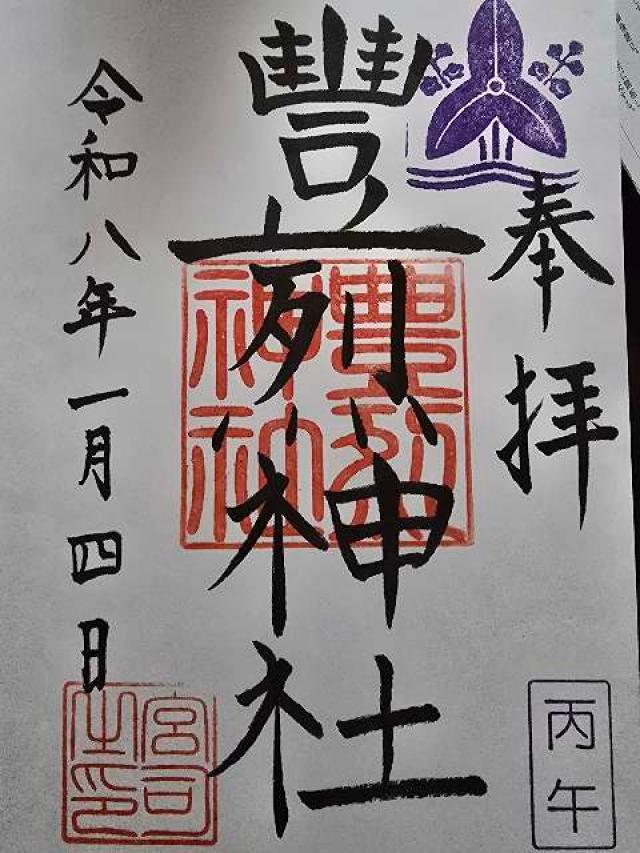 奉拝
豐烈神社
豊烈
神社
令和八年一月四日
宮司
之印
丙午